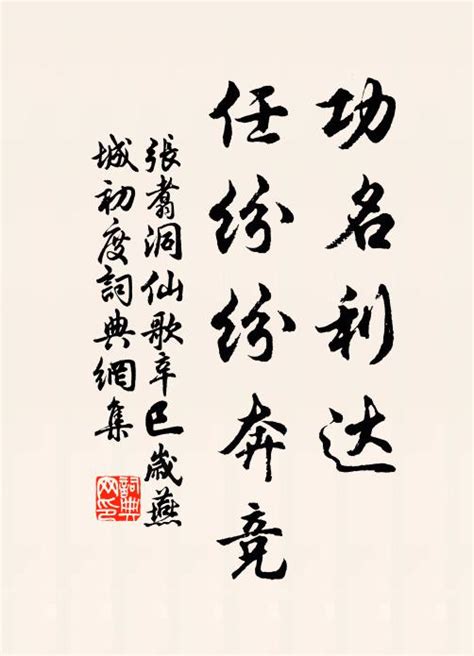 功名利达
任纷纷奔竞
張翥洞仙歌辛巳歲燕
城初度詞典網集
詞典
网印